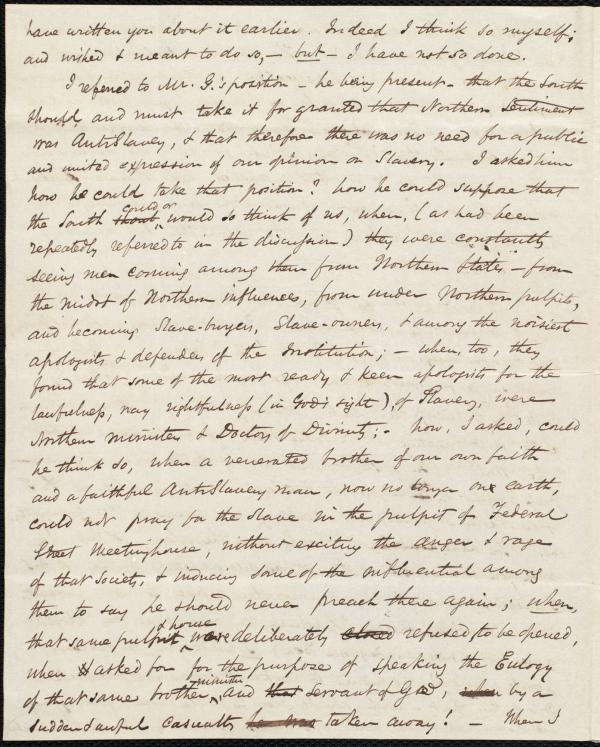 have written you about it earlier. Indeed I think so myself;
and wished & meant to do so, – but – I have not so done.
I referred to Mr. G.'s position – he being present – that the South
should, and must take it for granted that Northern Sentiment
was AntiSlavery, & that therefore there was no need for a public
and united expression of our opinion on Slavery. I asked him
how he could take that position? how he could suppose that
could or
the South would so think of us, when, (as had been
repeatedly referred to in the discussion) they were constantly
seeing men coming among them from Northern States, – from
the midst of Northern influences, from under Northern pulpits,
and becoming Slave-buyers, Slave-owners, & among the noisiest
apologists & defenders of the Institution; – when, too, they
found that some of the most ready & keen apologists for the
lawfulness, nay rightfulness (in God's sight), of Slavery, were
Northern ministers & Doctors of Divinity; – how, I asked, could
he think so, when a venerated brother of our own faith
and a faithful AntiSlavery man, now no longer on earth,
could not pray for the Slave in the pulpit of Federal
Street Meetinghouse, without exciting the anger & rage
of that Society, & inducing some of the influential among
them to say he should never preach there again; when,
& house
that same pulpit were deliberately closed refused to be opened,
when asked for for the purpose of speaking the Eulogy
minister
of that same brother, and that servant of God, when by a
sudden & awful casualty he was taken away! – When I